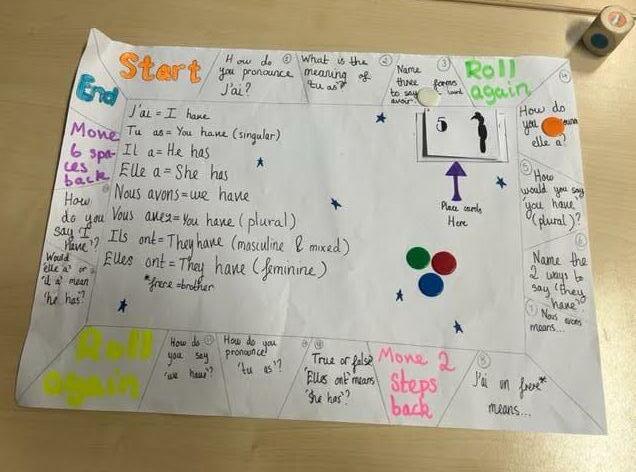 Start
How do
you pronounce
J'ai?
①
What is the
meaning of
'tu as'?
②
Name
three
forms
to say
avoir.
③
Roll
again
④
How do
you
elle a?
⑤
How
would you say
'you have
(plural)?
⑥
Name the
2 ways to
say 'they
have'?
⑦ Nous avons
means...
⑧
J'ai un frere*
means...
Move 2
Steps
back
True or false
'Elles ont' means
'she has'?
How do you
pronounce
'tu as'?
How do
you say
'we have'?
Roll
again
Would
'elle a' or
'il a' mean
'he has'?
How
do you
say 'I
have'?
Move
6 spa-
ces
back
End
J'ai = I have
Tu as = You have (singular)
Il a = He has
Elle a = She has
Nous avons = we have
Vous avez = You have (plural)
Ils ont = They have (masculine & mixed)
Elles ont = They have (feminine)
*frere = brother
5
Place cards
Here